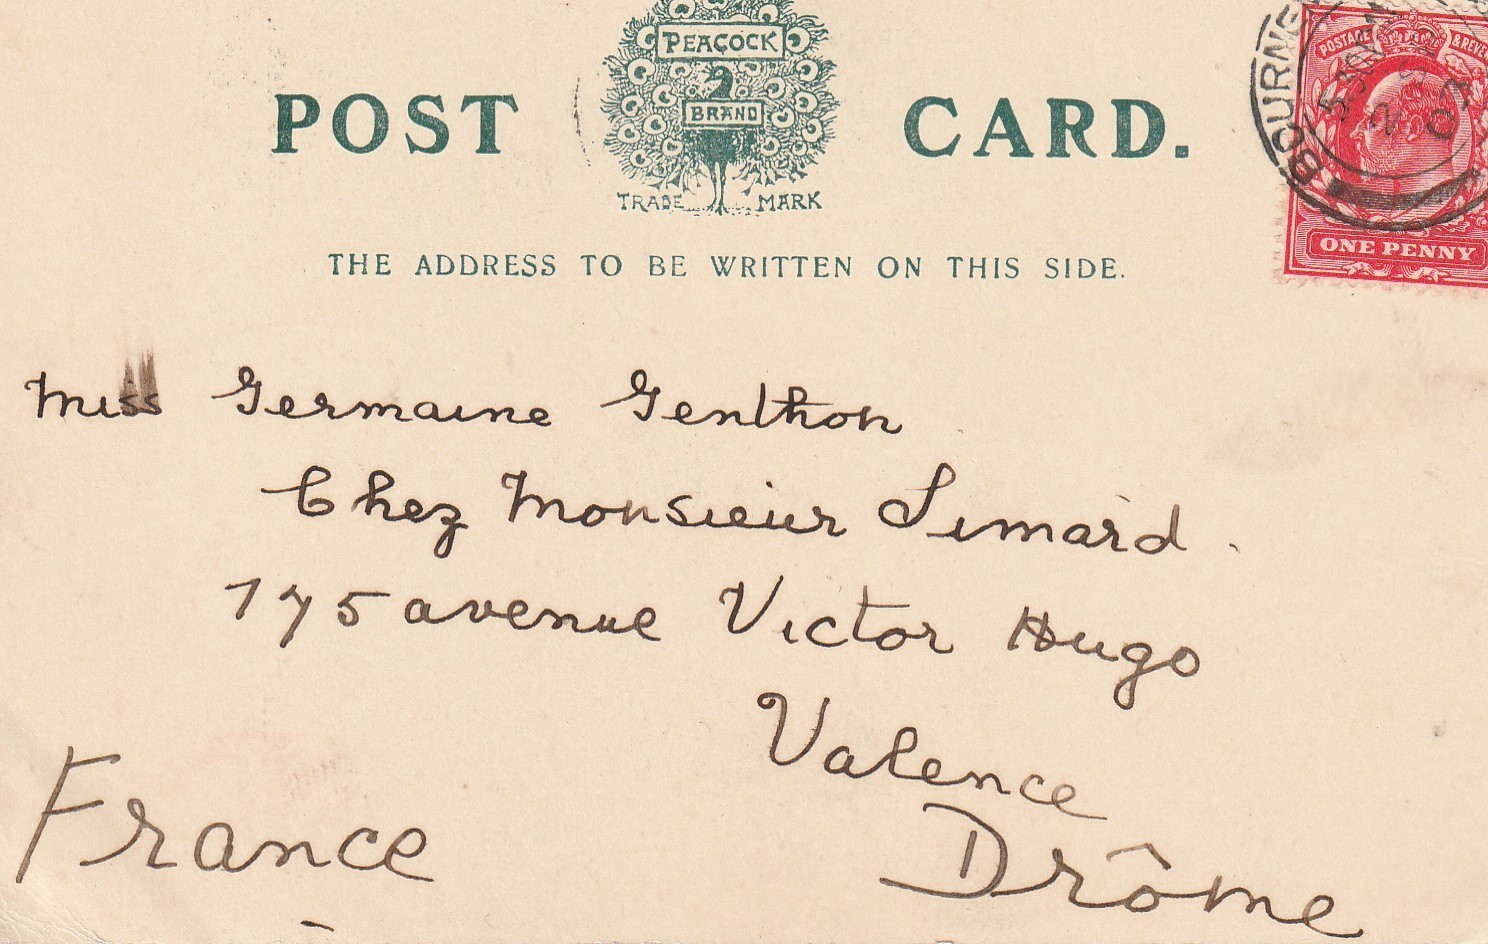 PEACOCK
BRAND
POST CARD.
TRADE MARK
THE ADDRESS TO BE WRITTEN ON THIS SIDE.
POSTAGE & REVE
ONE PENNY
BOURNE
Miss Germaine Genthon
Chez Monsieur Simard.
175 avenue Victor Hugo
Valence
France
Drôme